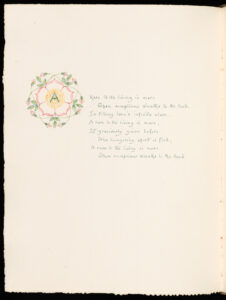 A Rose to the living is more
Than sumptuous wreaths to the dead.
In filling love's infinite store,
A rose to the living is more,
If graciously given before
The hungering spirit is fled,
A rose to the living is more
Than sumptuous wreaths to the dead.